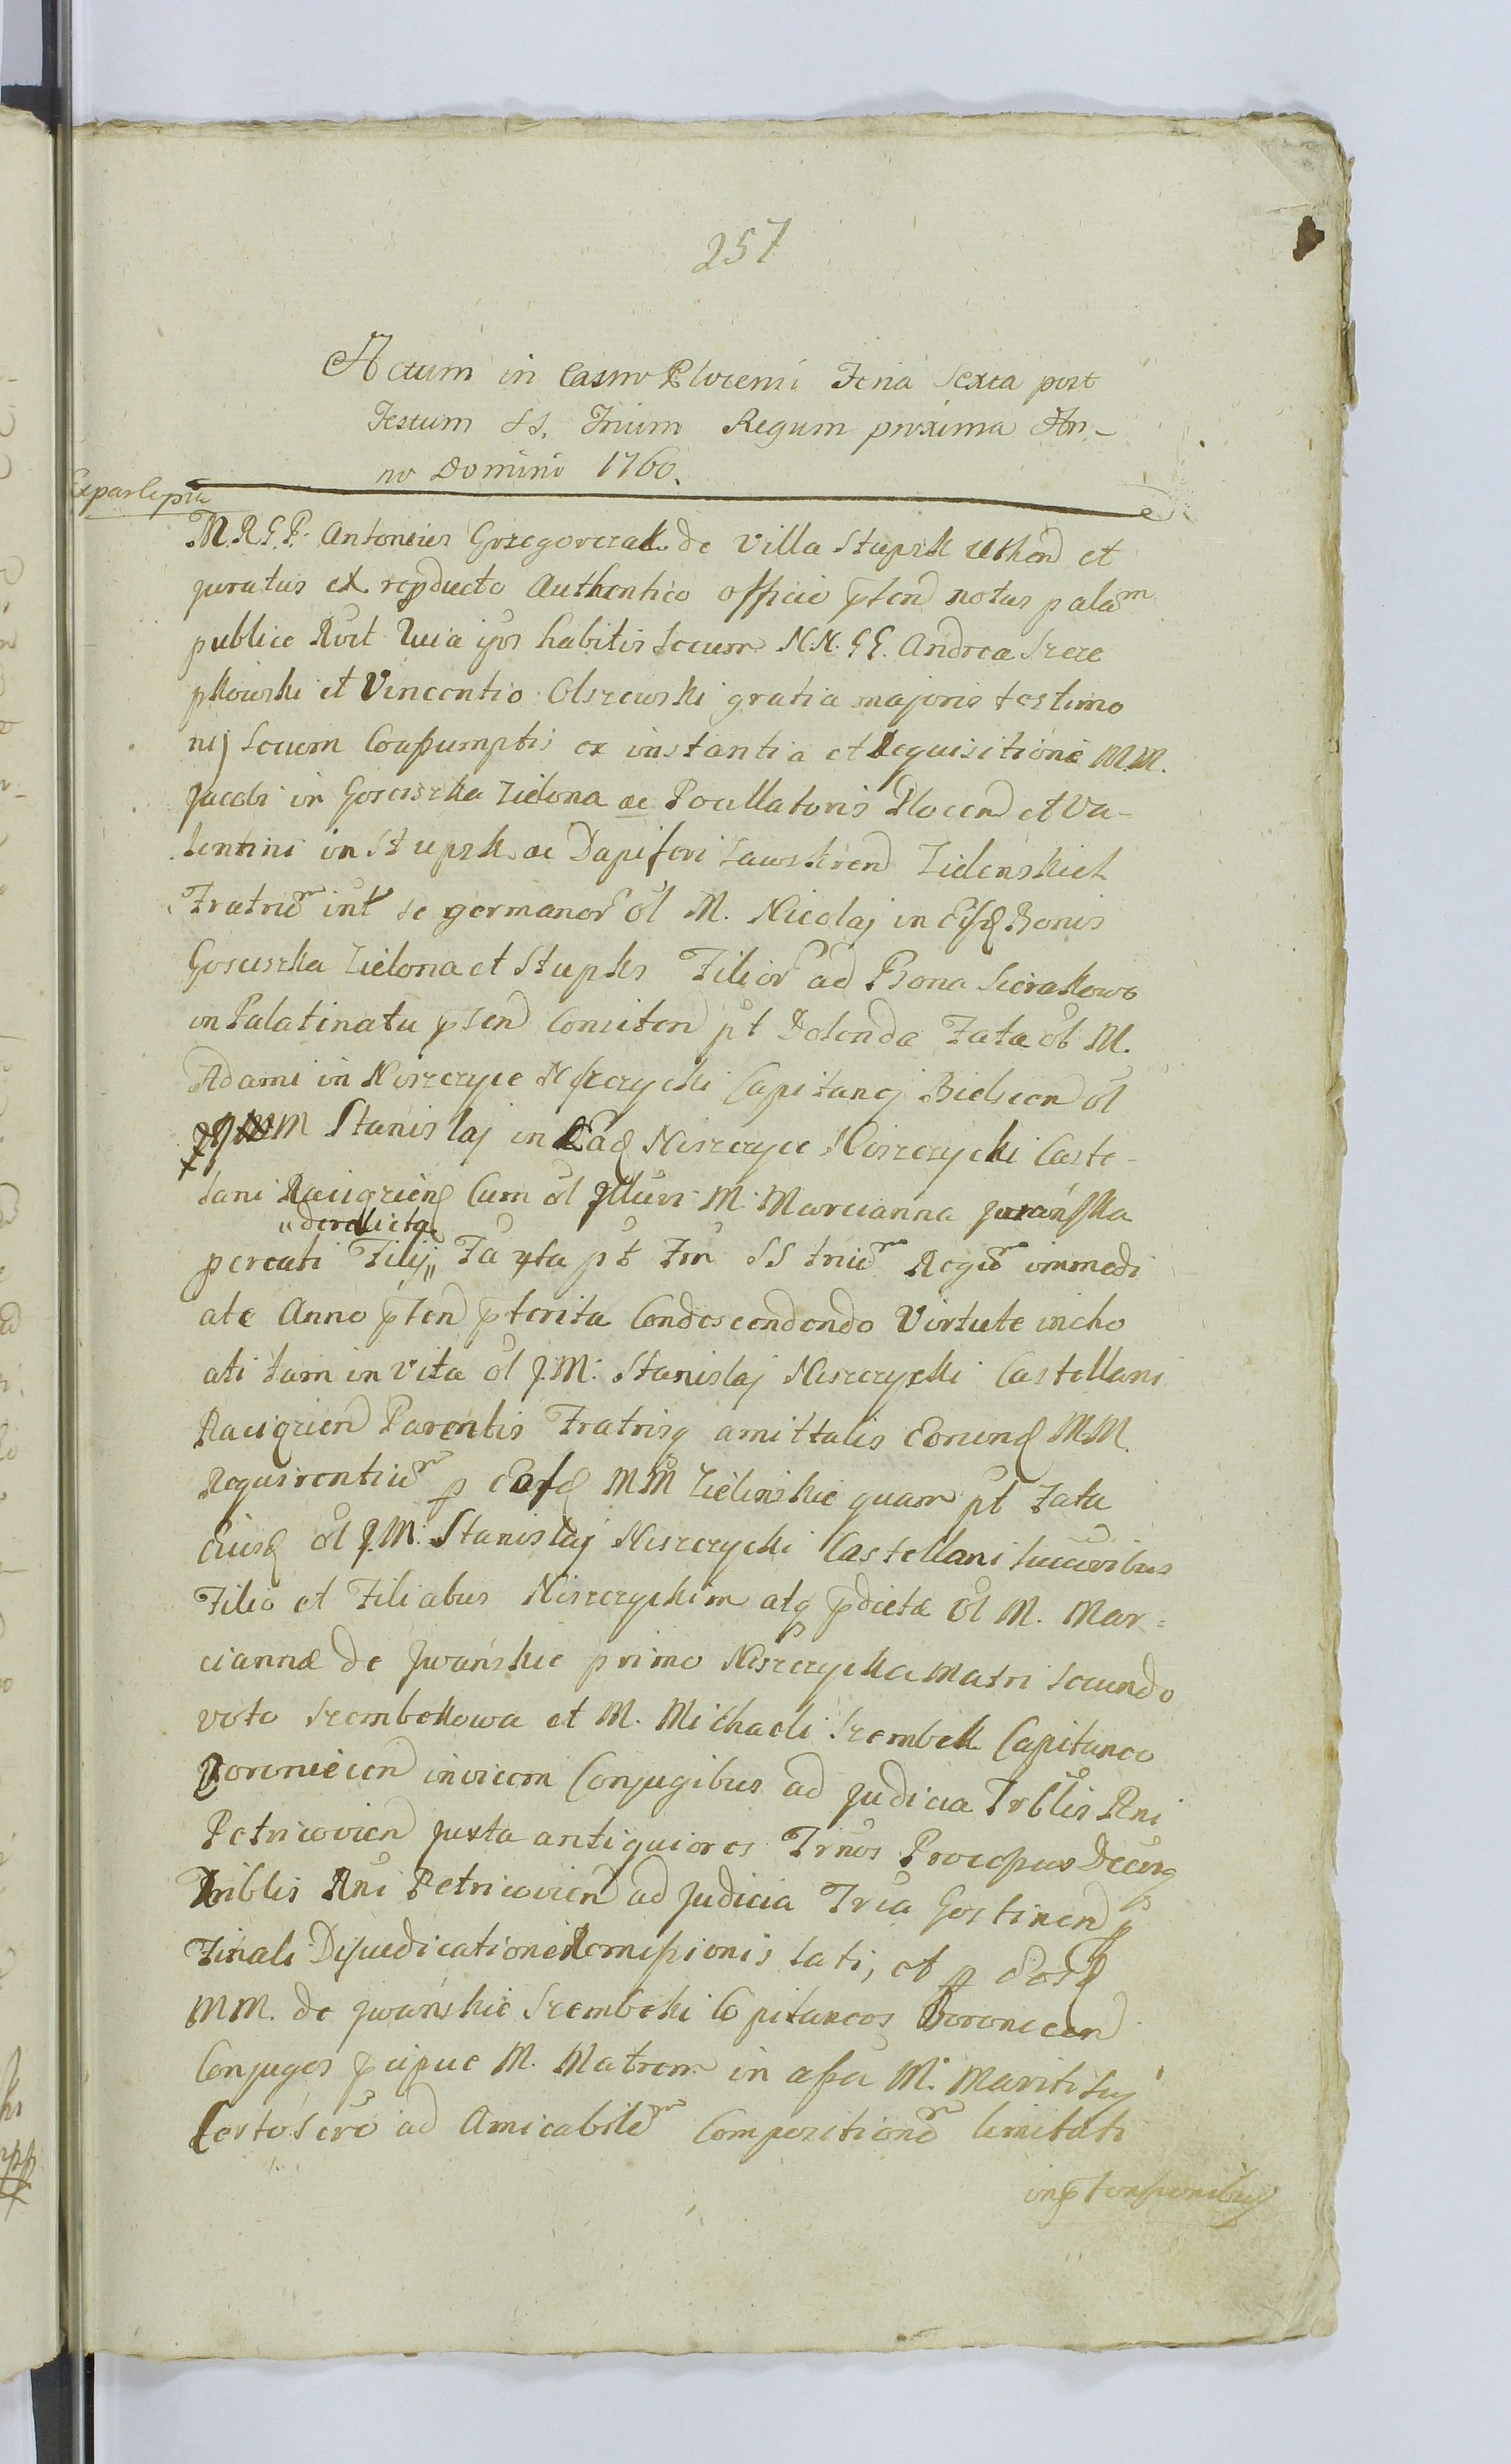 257
Actum in Castro Plocensi Feria Sexta post
Festum SS. Trium Regum proxima An-
no Domini 1760.
M.R.G.P. Antonius Grzegorczak de Villa Stupsk et
juratus ex reproducto Authentico officio p̃sen notus palam
publice Rvit Quia ipse habitis secum N.N. GG. Andrea Szcze
pkowski et Vincentio Olszewski gratia majoris testimo
nij secum Conssumptis ex instantia et Requisitione M.M.
Jacobi in Gosciszka Zielona ac Pocillatoris Plocen et Va-
lentini in Stupsk ac Dapiferi Zawskren Zielenskich
Fratrum int se germanor ol M. Nicolaj in Eisd Bonis
Gosciszka Zielona et Stupks Filior ad Bona Sierakowo
in Palatinatu p̃sen Consisten pt Dolenda Fata ol M.
Adami in Niszczyce Nisczycki Capitanej Bielscen ol
JJ M M Stanislaj in Ead Niszczyce Niszczycki Caste-
lani Raciązien Cum ol Illuri M. Marcianna Jwańska
„derelicta
percati Filij „ Fa pt Fm SS trium Regum immedi
ate Anno p̃sen p̃terita Condescendendo Virtute incho
ati tam in vita ol J.M. Stanislaj Niszczycki Castellani
Raciązien Parentis Fratrisq amittalis Eorund M.M.
Requirentium p Eosd MM Zielinskie quam pt Fata
Eiusd ol J.M. Stanislaj Niszczycki Castellani
Filio et Filiabus Niszczyckim atq p̃dictæ ol M. Mar=
ciannæ de Jwańskie primo Niszczycka Matri secundo
voto Szembekowa et M. Michaeli Szembek Capitaneo
invicem Conjugibus ad Judicia Trblis Rni
Petricovien Juxta antiquiores Trnos Processus Decursq
Triblis Rni Petricovien ad Judicia Tria Gostinen p
Finali Disjudicatione Remissionis lati, et p Eosd
MM. de Jwańskie Szembeki Capitaneos
Conjuges p̃cipue M. Matrem in assa M. Mariti suj
Certo sero ad Amicabilem Compozitionem limitati
in p̃tensionibus